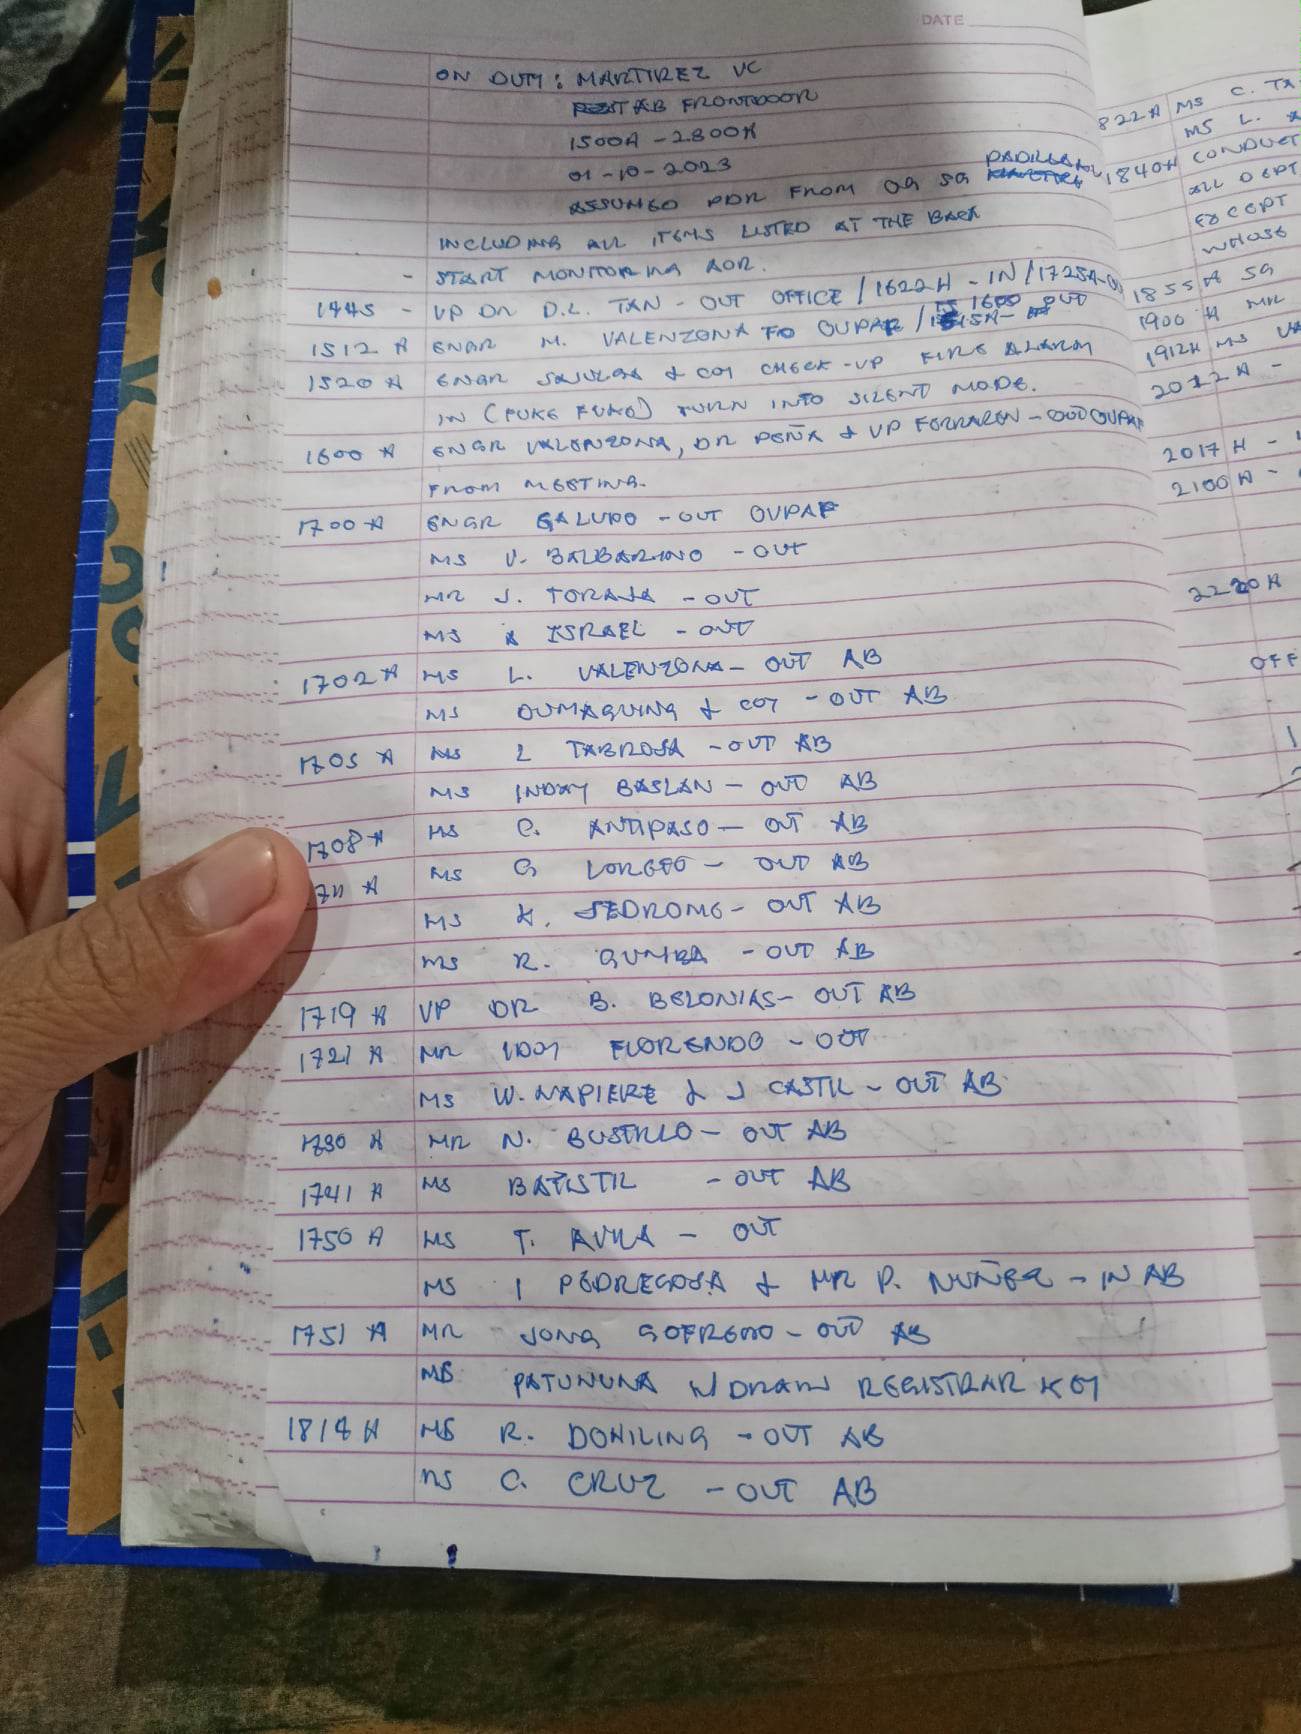 DATE
ON DUTY: MARTIREZ VC
POST AB FRONTDOOR
1500H - 2300H
01-10-2023
ASSUMED PDR FROM OG SG PADILLA
INCLUDING ALL ITEMS LISTED AT THE BACK
- START MONITORING AOR.
1445 - VP DR D.L. TAN - OUT OFFICE / 1622H - IN / 1725H - OUT
1512 H ENGR M. VALENZONA TO OVPAF / 1600 OUT
1520 H ENGR & COY CHECK-UP FIRE ALARM
IN (FUKE FUKO) TURN INTO SILENT MODE.
1600 H ENGR VALENZONA, DR PEÑA & VP FERRAREN - OUT OVPAF
FROM MEETING.
1700 H ENGR GALUDO - OUT OVPAF
MS V. BALBARINO - OUT
MR J. TORAJA - OUT
MS A ISRAEL - OUT
1702 H MS L. VALENZONA - OUT AB
MS DUMAGUING & COY - OUT AB
1705 H MS L TABROSA - OUT AB
MS INDAY BASLAN - OUT AB
1708 H MS C. ANTIPASO - OUT AB
1711 H MS G LORETO - OUT AB
MS K. JEDROME - OUT AB
MS R. GUMBA - OUT AB
1719 H VP DR B. BELONIAS - OUT AB
1721 H MR IDOY FLORENDO - OUT
MS W. NAPIERE & J CASTIL - OUT AB
1730 H MR N. BUSTILLO - OUT AB
1741 H MS BATISTIL - OUT AB
1750 H MS T. AVILA - OUT
MS I PEDREGOSA & MR P. NUÑEZ - IN AB
1751 H MR JONG GOFREDO - OUT AB
MS PATUNUNA W/DRAW REGISTRAR KEY
1818 H MS R. DOHILING - OUT AB
MS C. CRUZ - OUT AB
822 H MS C. TA
MS L.
1840H CONDUCT
ALL DEPT
EXCEPT
WHOSE
1855 H SG
1900 H MR
1912H MS VA
2012 H -
2017 H -
2100 H -
2220 H
OFF